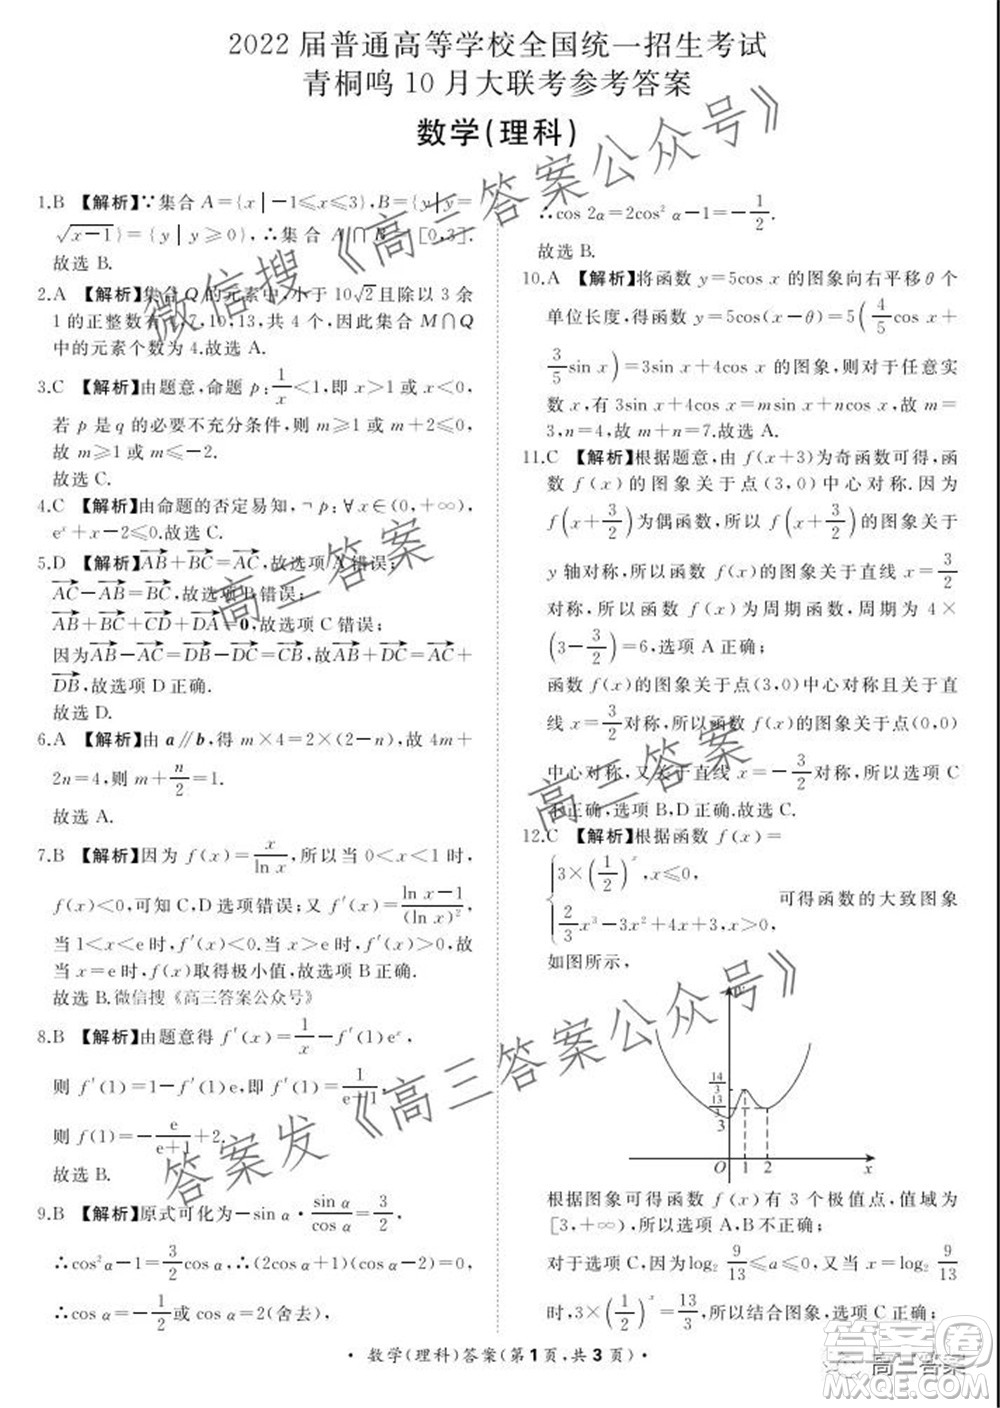 2022 届普通高等学校全国统一招生考试
青桐鸣 10 月大联考参考答案
数学(理科)
1.B 【解析】∵集合 A={x|-1≤x≤3},B={y|y=
√(x-1)}={y|y≥0},∴集合 A∩B=[0,3].
故选 B.
2.A 【解析】集合 Q 的元素中,小于 10√2且除以 3 余
1 的正整数有 4,7,10,13,共 4 个,因此集合 M∩Q
中的元素个数为 4.故选 A.
3.C 【解析】由题意,命题 p:1/x<1,即 x>1 或 x<0,
若 p 是 q 的必要不充分条件,则 m≥1 或 m+2≤0,
故 m≥1 或 m≤-2.
故选 C.
4.C 【解析】由命题的否定易知,¬p:∀x∈(0,+∞),
eˣ+x-2≤0.故选 C.
5.D 【解析】AB+BC=AC,故选项 A 错误;
AC-AB=BC,故选项 B 错误;
AB+BC+CD+DA=0,故选项 C 错误;
因为AB-AC=DB-DC=CB,故选项 AB+DC=AC+
DB,故选项 D 正确.
故选 D.
6.A 【解析】由 a∥b,得 m×4=2×(2-n),故 4m+
2n=4,则 m+n/2=1.
故选 A.
7.B 【解析】因为 f(x)=x/ln x,所以当 0<x<1 时,
f(x)<0,可知 C,D 选项错误;又 f′(x)=(ln x-1)/(ln x)²,
当 1<x<e 时,f′(x)<0.当 x>e 时,f′(x)>0,故
当 x=e 时,f(x)取得极小值,故选项 B 正确.
故选 B.微信搜《高三答案公众号》
8.B 【解析】由题意得 f′(x)=1/x-f′(1)eˣ,
则 f′(1)=1-f′(1)e,即 f′(1)=1/(e+1),
则 f(1)=-e/(e+1)+2.
故选 B.
9.B 【解析】原式可化为-sin α·sin α/cos α=3/2,
∴cos²α-1=3/2cos α,∴(2cos α+1)(cos α-2)=0,
∴cos α=-1/2或 cos α=2(舍去),
∴cos 2α=2cos² α-1=-1/2.
故选 B.
10.A 【解析】将函数 y=5cos x 的图象向右平移 θ 个
单位长度,得函数 y=5cos(x-θ)=5(4/5cos x+
3/5sin x)=3sin x+4cos x 的图象,则对于任意实
数 x,有 3sin x+4cos x=msin x+ncos x,故 m=
3,n=4,故 m+n=7.故选 A.
11.C 【解析】根据题意,由 f(x+3)为奇函数可得,函
数 f(x)的图象关于点(3,0)中心对称.因为
f(x+3/2)为偶函数,所以 f(x+3/2)的图象关于
y 轴对称,所以函数 f(x)的图象关于直线 x=3/2
对称,所以函数 f(x)为周期函数,周期为 4×
(3-3/2)=6,选项 A 正确;
函数 f(x)的图象关于点(3,0)中心对称且关于直
线 x=3/2对称,所以函数 f(x)的图象关于点(0,0)
中心对称,又关于直线 x=-3/2对称,所以选项 C
不正确,选项 B,D 正确.故选 C.
12.C 【解析】根据函数 f(x)=
{3×(1/2)ˣ,x≤0,
2/3x³-3x²+4x+3,x>0 可得函数的大致图象
如图所示,
14/3
13/3
3
O 1 2 x
根据图象可得函数 f(x)有 3 个极值点,值域为
[3,+∞),所以选项 A,B 不正确;
对于选项 C,因为log₂ 9/13≤x≤a,又当 x=log₂ 9/13
时,3×(1/2)ˣ=13/3,所以结合图象,选项 C 正确;
· 数学(理科)答案(第 1 页,共 3 页) ·
微信搜《高三答案公众号》
高三答案
高三答案
答案发《高三答案公众号》
高三答案
答案圈
MXQE.COM